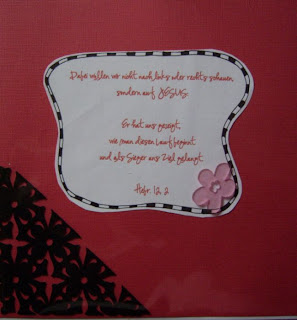 Dabei wollen wir nicht nach links oder rechts schauen,
sondern auf JESUS.
Er hat uns gezeigt,
wie man diesen Lauf beginnt
und als Sieger ans Ziel gelangt.
Hebr. 12, 2